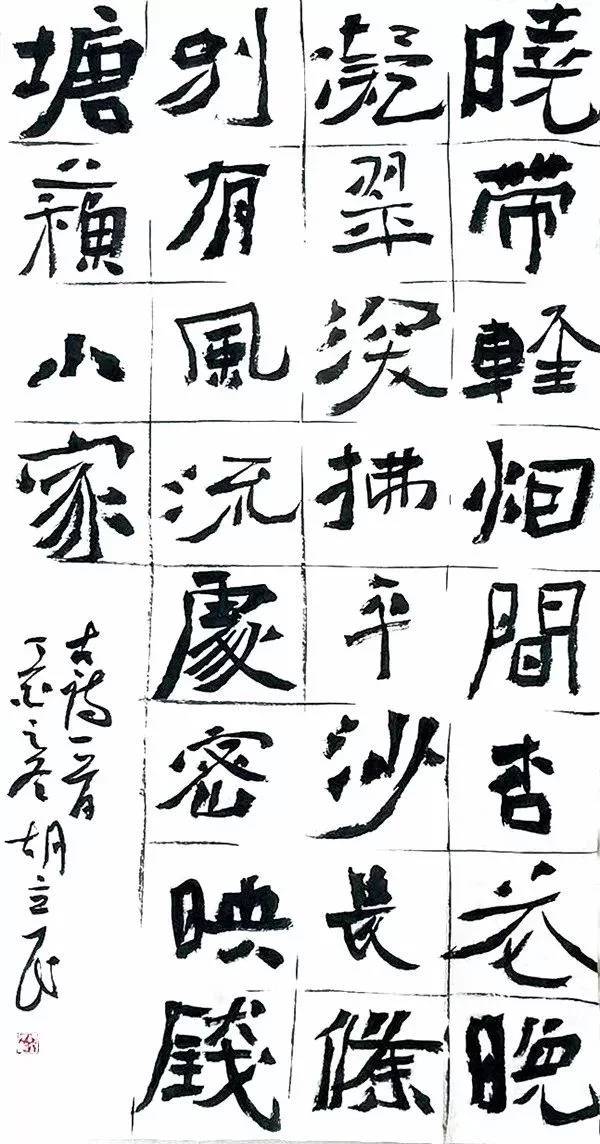 曉帶輕烟間杏花晚
凝翠深拂平沙長條
別有風流處密映錢
塘蘓小家
古詩一首
之冬胡立民